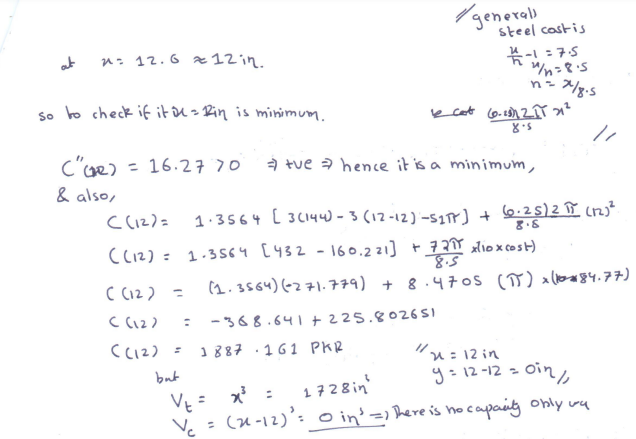 // general)
steel cost is
x/h - 1 = 7.5
x/h = 8.5
h = x/8.5
(0.25) 2π x² / 8.5 //
at x = 12.6 ≈ 12 in.
so to check if it x = 12in is minimum.
C"(12) = 16.27 > 0 ⇒ +ve ⇒ hence it is a minimum,
& also,
C(12) = 1.3564 [3(144) - 3(12-12) - 51π] + (0.25)2π (12)² / 8.5
C(12) = 1.3564 [432 - 160.221] + 72π / 8.5 x(10 x cost)
C(12) = (1.3564)(-271.779) + 8.4705 (π) x(84.77)
C(12) = -368.641 + 225.802651
C(12) = 1887.161 PKR
// x = 12 in
y = 12-12 = 0in //
but
Vt = x³ = 1728in³
Vc = (x-12)³ = 0 in³ ⇒ There is no capacity only